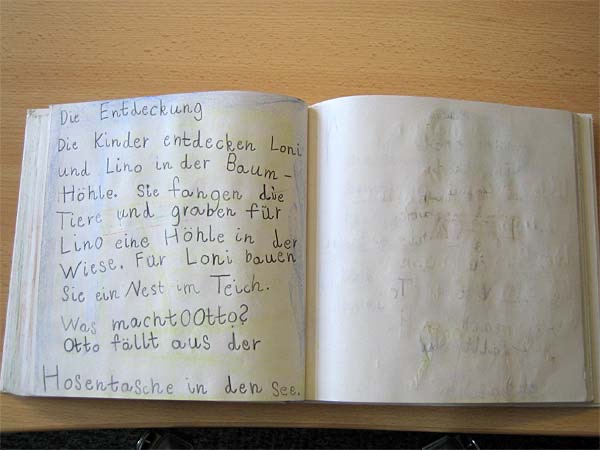 Die Entdeckung
Die Kinder entdecken Loni
und Lino in der Baum-
Höhle. Sie fangen die
Tiere und graben für
Lino eine Höhle in der
Wiese. Für Loni bauen
Sie ein Nest im Teich.
Was machtOOtto?
Otto fällt aus der
Hosentasche in den See.